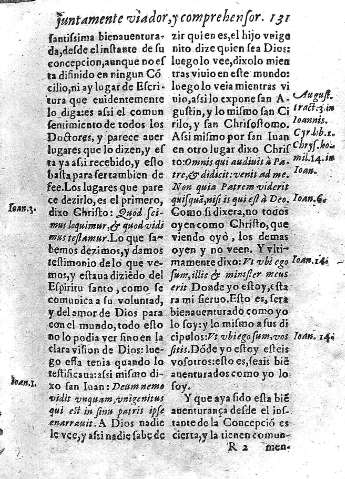 juntamente viador, y comprehensor. 131
santissima bienauentura-
da, desde el instante de su
concepcion, aunque no es
ta difinido en ningun Cō
cilio, ni ay lugar de Escri
tura que euidentemente
lo diga: assi el comun
sentimiento de todos los
Doctores, y parece auer
lugares que lo dizen, y es
ta ya assi recebido, y esto
basta para ser tambien de
fee. Los lugares que pare
ce dezirlo, es el primero,
dixo Christo: Quod sci-
mus loquimur, & quod vidi
mus testamur. Lo que sa-
bemos dezimos, y damos
testimonio de lo que ve-
mos, y estaua diziēdo del
Espiritu santo, como se
comunica a su voluntad,
y del amor de Dios para
con el mundo, todo esto
no lo podia ver sino en la
clara vision de Dios: lue-
go esta viendo quando lo
testificaua: assi mismo di-
xo san Iuan: Deum nemo
vidit vnquam, vnigenitus
qui est in sinu patris ipse
enarrauit. A Dios nadie
le vee, y assi nadie sabe de
Ioan. 3.
Ioan. 1.
zir quien es, el hijo vnige
nito dize quien sea Dios:
luego lo vee, dixolo mien
tras viuio en este mundo:
luego lo veia mientras vi
uio, assi lo expone san A-
gustin, y lo mismo san Ci
rilo, y san Chrisostomo.
Assi mismo por san Iuan
en otro lugar dixo Chris
to: Omnis qui audiuit à Pa-
tre, & didicit: venit ad me.
Non quia Patrem viderit
quisquā, nisi is qui est à Deo.
Como si dixera, no todos
oyen como Christo, que
viendo oyò, los demas
oyen y no veen. Y vlti-
mamente dixo: Vt vbi ego
sum, illic & minister meus
erit Donde yo estoy, esta
ra mi sieruo. Esto es, sera
bienauenturado como yo
lo soy: y lo mismo a sus di
cipulos: Vt vbi ego sum, vos
sitis. Dōde yo estoy esteis
vosotros: esto es, seais biē
auenturados como yo lo
soy.
Y que aya sido esta bie
auenturança desde el ins-
tante de la Concepciō es
cierta, y la tienen comun-
R 2 men-
August.
tract. 3. in
Ioannis.
Cyr. lib. 1.
Chrys. ho
mil. 14. in
Ioan.
Ioan. 6.
Ioan. 14.
Ioan. 14.